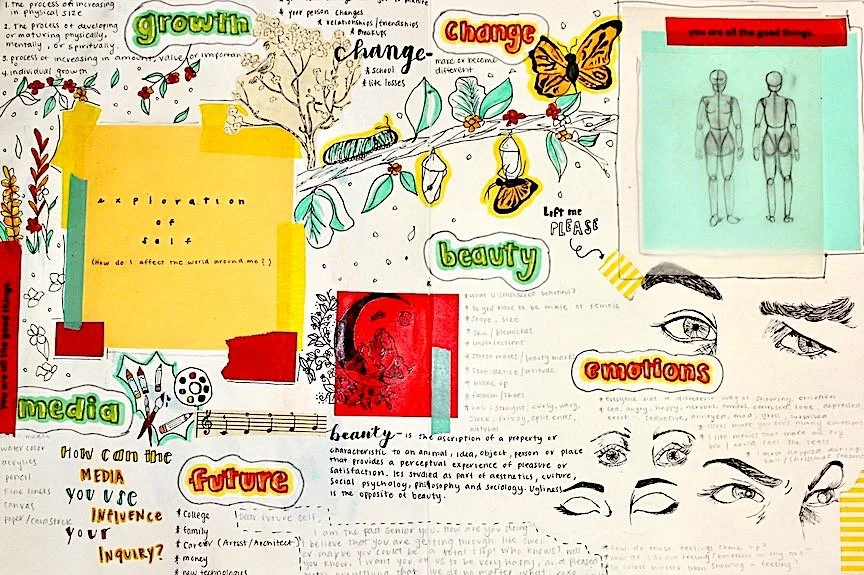 1. The process of increasing
in physical size
2. The process of developing
or maturing physically,
mentally, or spiritually.
3. process of increasing in amount, value, or importan
4. individual growth
growth
* your person changes
* relationships/friendships
* Breakups
change-
make or become
different
* school
* life losses
change
you are all the good things.
exploration
of
self
(How do I affect the world around me?)
you are all the good things.
Lift me
PLEASE
beauty
* what is considered beautiful?
* Do you have to be male or female
* shape, size
* skin/blemishes
* imperfections
* stretch marks/beauty marks
* confidence/attitude
* make up
* fashion/shoes
* hair: straight, curly, wavy,
sleek, frizzy, split ends,
natural
beauty- is the ascription of a property or
characteristic to an animal, idea, object, person or place
that provides a perceptual experience of pleasure or
satisfaction. Its studied as part of aesthetics, culture,
social psychology, philosophy and sociology. Ugliness
is the opposite of beauty.
emotions
* everyone has a different way of showing emotion
* sad, angry, happy, nervous,
media
water color
acrylics
pencil
Fine liners
canvas
paper/
HOW CAN the
MEDIA
YOU USE
INFLUENCE
YOUR
INQUIRY?
future
* College
* family
* Career (Artist/Architect)
* money
* new technologies
Dear future self,
I am the past senior you. How are you doing?
I believe that you are getting through life
or maybe you could be a total flop! Who knows!
you know. I want you to be very happy, and pleased
* How do these feelings come up?